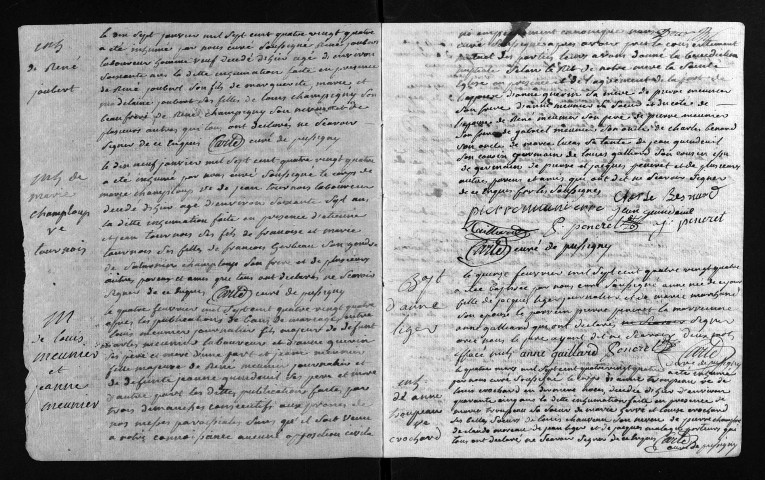 inh
de René
joubert
le dix sept janvier mil sept cent quatre vingt quatre
a été inhumé par nous curé soussigné René joubert
laboureur homme veuf decedé d'hier agé d'environ
soixante ans la ditte inhumation faite en presence
de René joubert son fils de marguerite marie et
madelaine joubert ses filles de louis champigny son
beau frère de René champigny son neveu et de
plusieurs autres qui tous ont declaré ne scavoir
signer de ce enquis Carté curé de pussigny
inh de
marie
champloup
ve
tournois
le dix neuf janvier mil sept cent quatre vingt quatre
a été inhumé par nous curé soussigné le corps de
marie champloup ve de jean tournois laboureur
decedé d'hier agé d'environ soixante sept ans
la ditte inhumation faite en presence d'etienne
et jean tournois ses fils de francoise et marie
tournois ses filles de francois son gendre
de saturnin champloup son frere et de plusieurs
autres parens et amis qui tous ont declaré ne scavoir
signer de ce enquis Carté curé de pussigny
M
de louis
meunier
et
jeanne
meunier
le quatre fevrier mil sept cent quatre vingt quatre
après la publications de bans de mariage entre
louis meunier journalier fils majeur de defunt
charles meunier laboureur et d'anne guerin
ses père et mere d'une part et jeanne meunier
fille majeure de René meunier journalier et
de defunte jeanne quindeuil ses père et mere
d'autre part les dittes publications faite par
trois dimanches consecutifs aux prones de
nos messes paroissiales sans qu'il soit venu
à notre connoissance aucune opposition civile
ne empeschement canonique nous
curé soussigné après avoir pris le consentement
mutuel des parties leur avons donné la benediction
nuptiale selon le rit de notre mere la sainte
Eglise en presence et de l'agrément de la part de
l'epoux d'anne guerin sa mere de pierre meunier
son frere d'anne meunier sa soeur de
l'epouse de René meunier son père de pierre meunier
son frere de gabriel meunier son oncle de charle besnard
son oncle de marie lucas sa tante de jean quindeuil
son cousin germain de louis gallard son cousin
de jacques pencret et de plusieurs
autres parens et amis qui ont dit ne scavoir signer
de ce enquis fors les soussignés
pierre meunier Charle Besnard
jean quindeuil
Gaillard pencret j pencret
Carté curé de pussigny
Bapt
d'anne
liger
le quinze fevrier mil sept cent quatre vingt quatre
a été baptisée par nous curé soussigné anne née de ce jour
fille de jacques liger journalier et de marie marchand
son epouse le parein pierre pencret la marreine
anne gaillard qui ont declaré signer
avec nous le pere ayant dit ne scavoir deux mots
effacé nuls anne gaillard Pencret Carté
curé de pussigny
inh
d'anne
troupeau
ve
crochard
le quatre mars mil sept cent quatre vingt quatre a été inhumé
par nous curé soussigné le corps d'anne troupeau ve de
louis crochard decedé d'hier d'environ
quarante cinq ans la ditte inhumation faite en presence de
marie troupeau sa soeur de marie et louise crochard
ses belles soeurs de louis chauveau son neveu de pierre champion
de claude moreau de jean liger et de jacques malagu de porteurs qui
tous ont declaré ne scavoir signer de ce enquis Carté
curé de pussigny